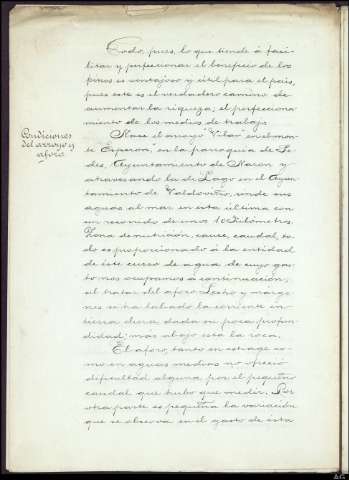 Todo, pues, lo que tiende á faci-
litar y perfeccionar el beneficio de los
pinos es ventajoso y útil para el país,
pues este es el verdadero camino de
aumentar la riqueza; el perfecciona-
miento de los medios de trabajo.
Condiciones
del arroyo y
aforo.
Nace el arroyo "Vilar" en el mon-
te Esperon, en la parroquia de Se-
des, Ayuntamiento de Narón y
atravesando la de Lago en el Ayun-
tamiento de Valdoviño, rinde sus
aguas al mar en esta última con
un recorrido de unos 10 Kilómetros.
Zona de nutrición, cauce, caudal, to-
do es proporcionado á la entidad
de este curso de agua de cuyo gas-
to nos ocupamos á continuación,
al tratar del aforo. Lecho y márge-
nes se ha labrado la corriente en
tierra dura dada su poca profun-
didad; mas abajo está la roca.
El aforo, tanto en estiage co-
mo en aguas medias no ofreció
dificultad alguna por el pequeño
caudal que hubo que medir. Por
otra parte es pequeña la variación
que se observa en el gasto de esta